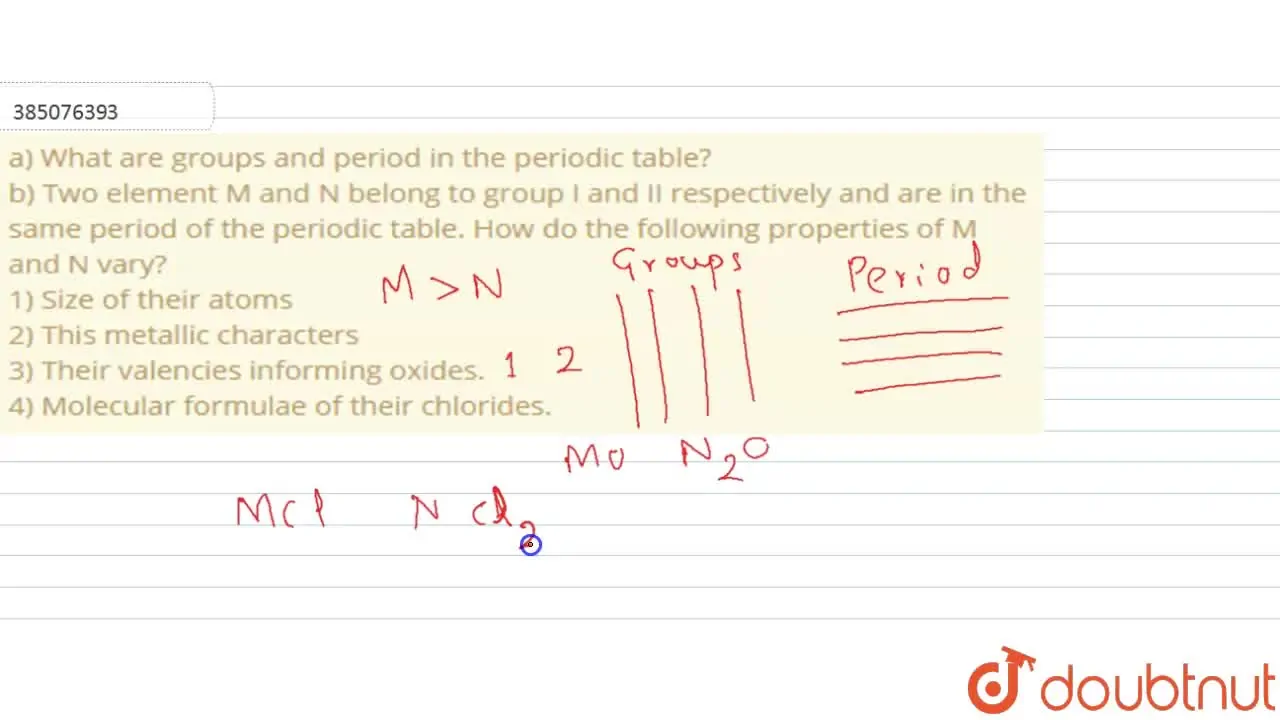 385076393
a) What are groups and period in the periodic table?
b) Two element M and N belong to group I and II respectively and are in the
same period of the periodic table. How do the following properties of M
and N vary?
Groups
Period
M > N
1) Size of their atoms
2) This metallic characters
3) Their valencies informing oxides.
1 2
4) Molecular formulae of their chlorides.
MO N2O
MCl NCl2
doubtnut